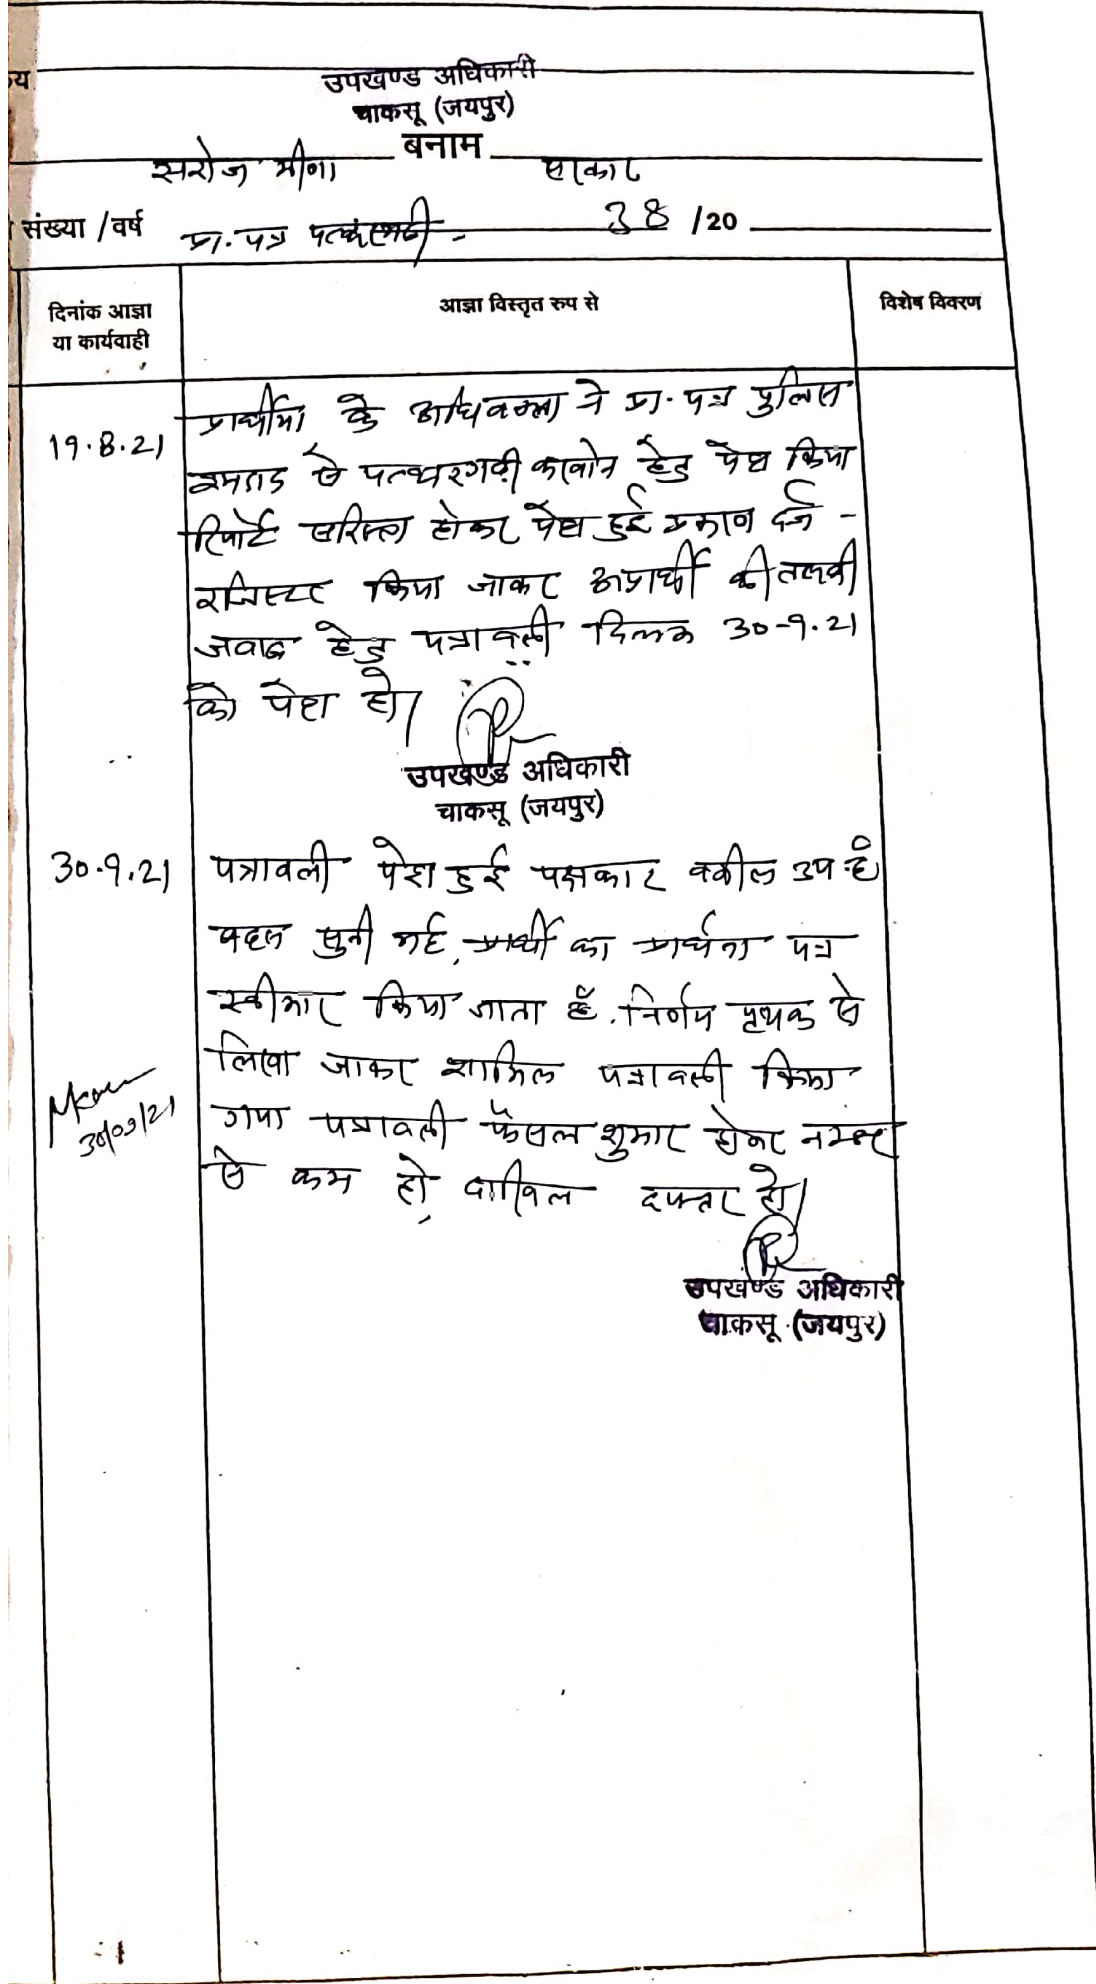 उपखण्ड अधिकारी
चाकसू (जयपुर)
बनाम
सरोज मीणा सरकार
संख्या / वर्ष प्रा. पत्र पत्थरगढी - 38 /20
दिनांक आज्ञा या कार्यवाही
आज्ञा विस्तृत रुप से
विशेष विवरण
19.8.21
प्रार्थीया के अधिवक्ता ने प्रा. पत्र पुलिस
इमदाद से पत्थरगढी करवाने हेतु पेश किया
रिपोर्ट सरिस्ता होकर पेश हुई प्रकरण दर्ज -
रजिस्टर किया जाकर अप्रार्थी की तलबी
जवाब हेतु पत्रावली दिनांक 30-9.21
को पेश हो।
उपखण्ड अधिकारी
चाकसू (जयपुर)
30.9.21
पत्रावली पेश हुई पक्षकार वकील उप. है
बहस सुनी गई, प्रार्थी का प्रार्थना पत्र
स्वीकार किया जाता है. निर्णय पृथक से
लिखा जाकर शामिल पत्रावली किया
गया पत्रावली फैसल शुमार होकर नम्बर
से कम हो, दाखिल दफ्तर हो।
30/09/21
उपखण्ड अधिकारी
चाकसू (जयपुर)